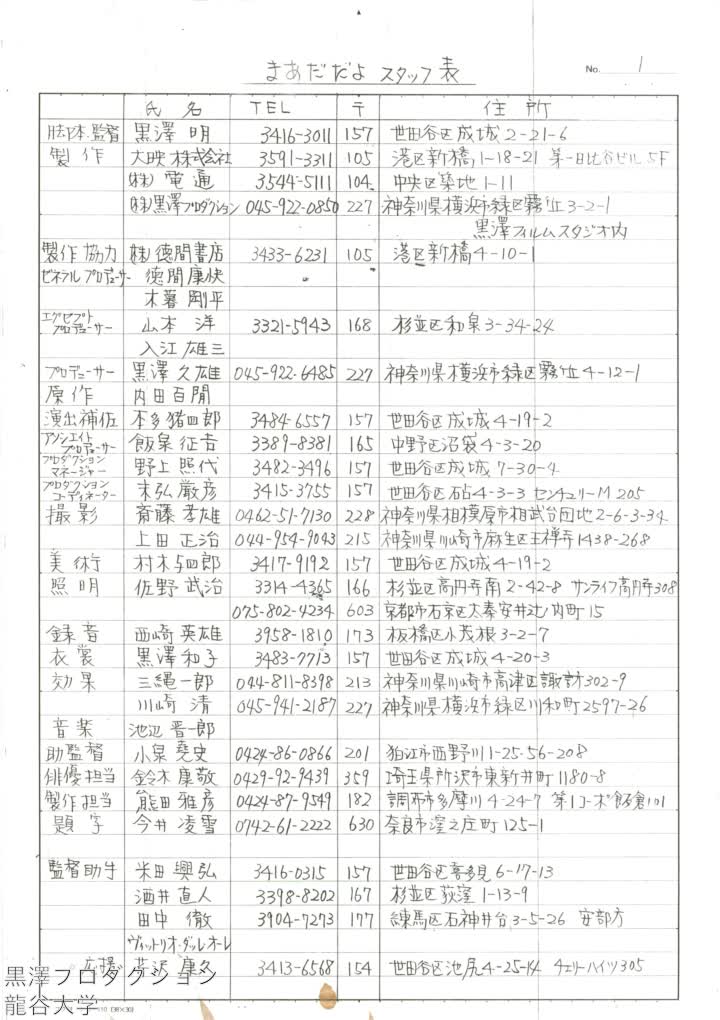 まあだだよ スタッフ表
No. 1
氏名 TEL 〒 住所
脚本・監督 黒澤 明 3416-3011 157 世田谷区成城2-21-6
製作 大映株式会社 3591-3311 105 港区新橋1-18-21 第一日比谷ビル5F
(株)電通 3544-5111 104 中央区築地1-11
(株)黒澤プロダクション 045-922-0850 227 神奈川県横浜市緑区霧が丘3-2-1
黒澤フィルムスタジオ内
製作協力 (株)徳間書店 3433-6231 105 港区新橋4-10-1
ゼネラルプロデューサー 徳間康快
木暮剛平
エグゼクティブプロデューサー 山本 洋 3321-5943 168 杉並区和泉3-34-24
入江雄三
プロデューサー 黒澤久雄 045-922-6485 227 神奈川県横浜市緑区霧が丘4-12-1
原作 内田百閒
演出補佐 本多猪四郎 3484-6557 157 世田谷区成城4-19-2
アソシエイトプロデューサー 飯泉征吉 3389-8381 165 中野区沼袋4-3-20
プロダクションマネージャー 野上照代 3482-3496 157 世田谷区成城7-30-4
プロダクションコーディネーター 末弘厳彦 3415-3755 157 世田谷区砧4-3-3 センチュリーM 205
撮影 斎藤孝雄 0462-51-7130 228 神奈川県相模原市相武台団地2-6-3-34
上田正治 044-954-9043 215 神奈川県川崎市麻生区王禅寺1438-268
美術 村木与四郎 3417-9192 157 世田谷区成城4-19-2
照明 佐野武治 3314-4365 166 杉並区高円寺南2-42-8 サンライフ高円寺308
075-802-4234 603 京都市右京区太秦安井辻ノ内町15
録音 西崎英雄 3958-1810 173 板橋区小茂根3-2-7
衣裳 黒澤和子 3483-7713 157 世田谷区成城4-20-3
効果 三縄一郎 044-811-8398 213 神奈川県川崎市高津区諏訪302-9
川崎 清 045-941-2187 227 神奈川県横浜市緑区川和町2597-26
音楽 池辺晋一郎
助監督 小泉堯史 0424-86-0866 201 狛江市西野川1-25-56-208
俳優担当 鈴木康敬 0429-92-9439 359 埼玉県所沢市東新井町1180-8
製作担当 熊田雅彦 0424-87-9549 182 調布市多摩川4-24-7 第1コーポ飯倉101
題字 今井凌雪 0742-61-2222 630 奈良市窪之庄町125-1
監督助手 米田興弘 3416-0315 157 世田谷区喜多見6-17-13
酒井直人 3398-8202 167 杉並区荻窪1-13-9
田中 徹 3904-7273 177 練馬区石神井台3-5-26 安部方
ヴィットリオ・ダッレ・オーレ
応援 芹沢康久 3413-6568 154 世田谷区池尻4-25-14 チェリーハイツ305
黒澤プロダクション
龍谷大学